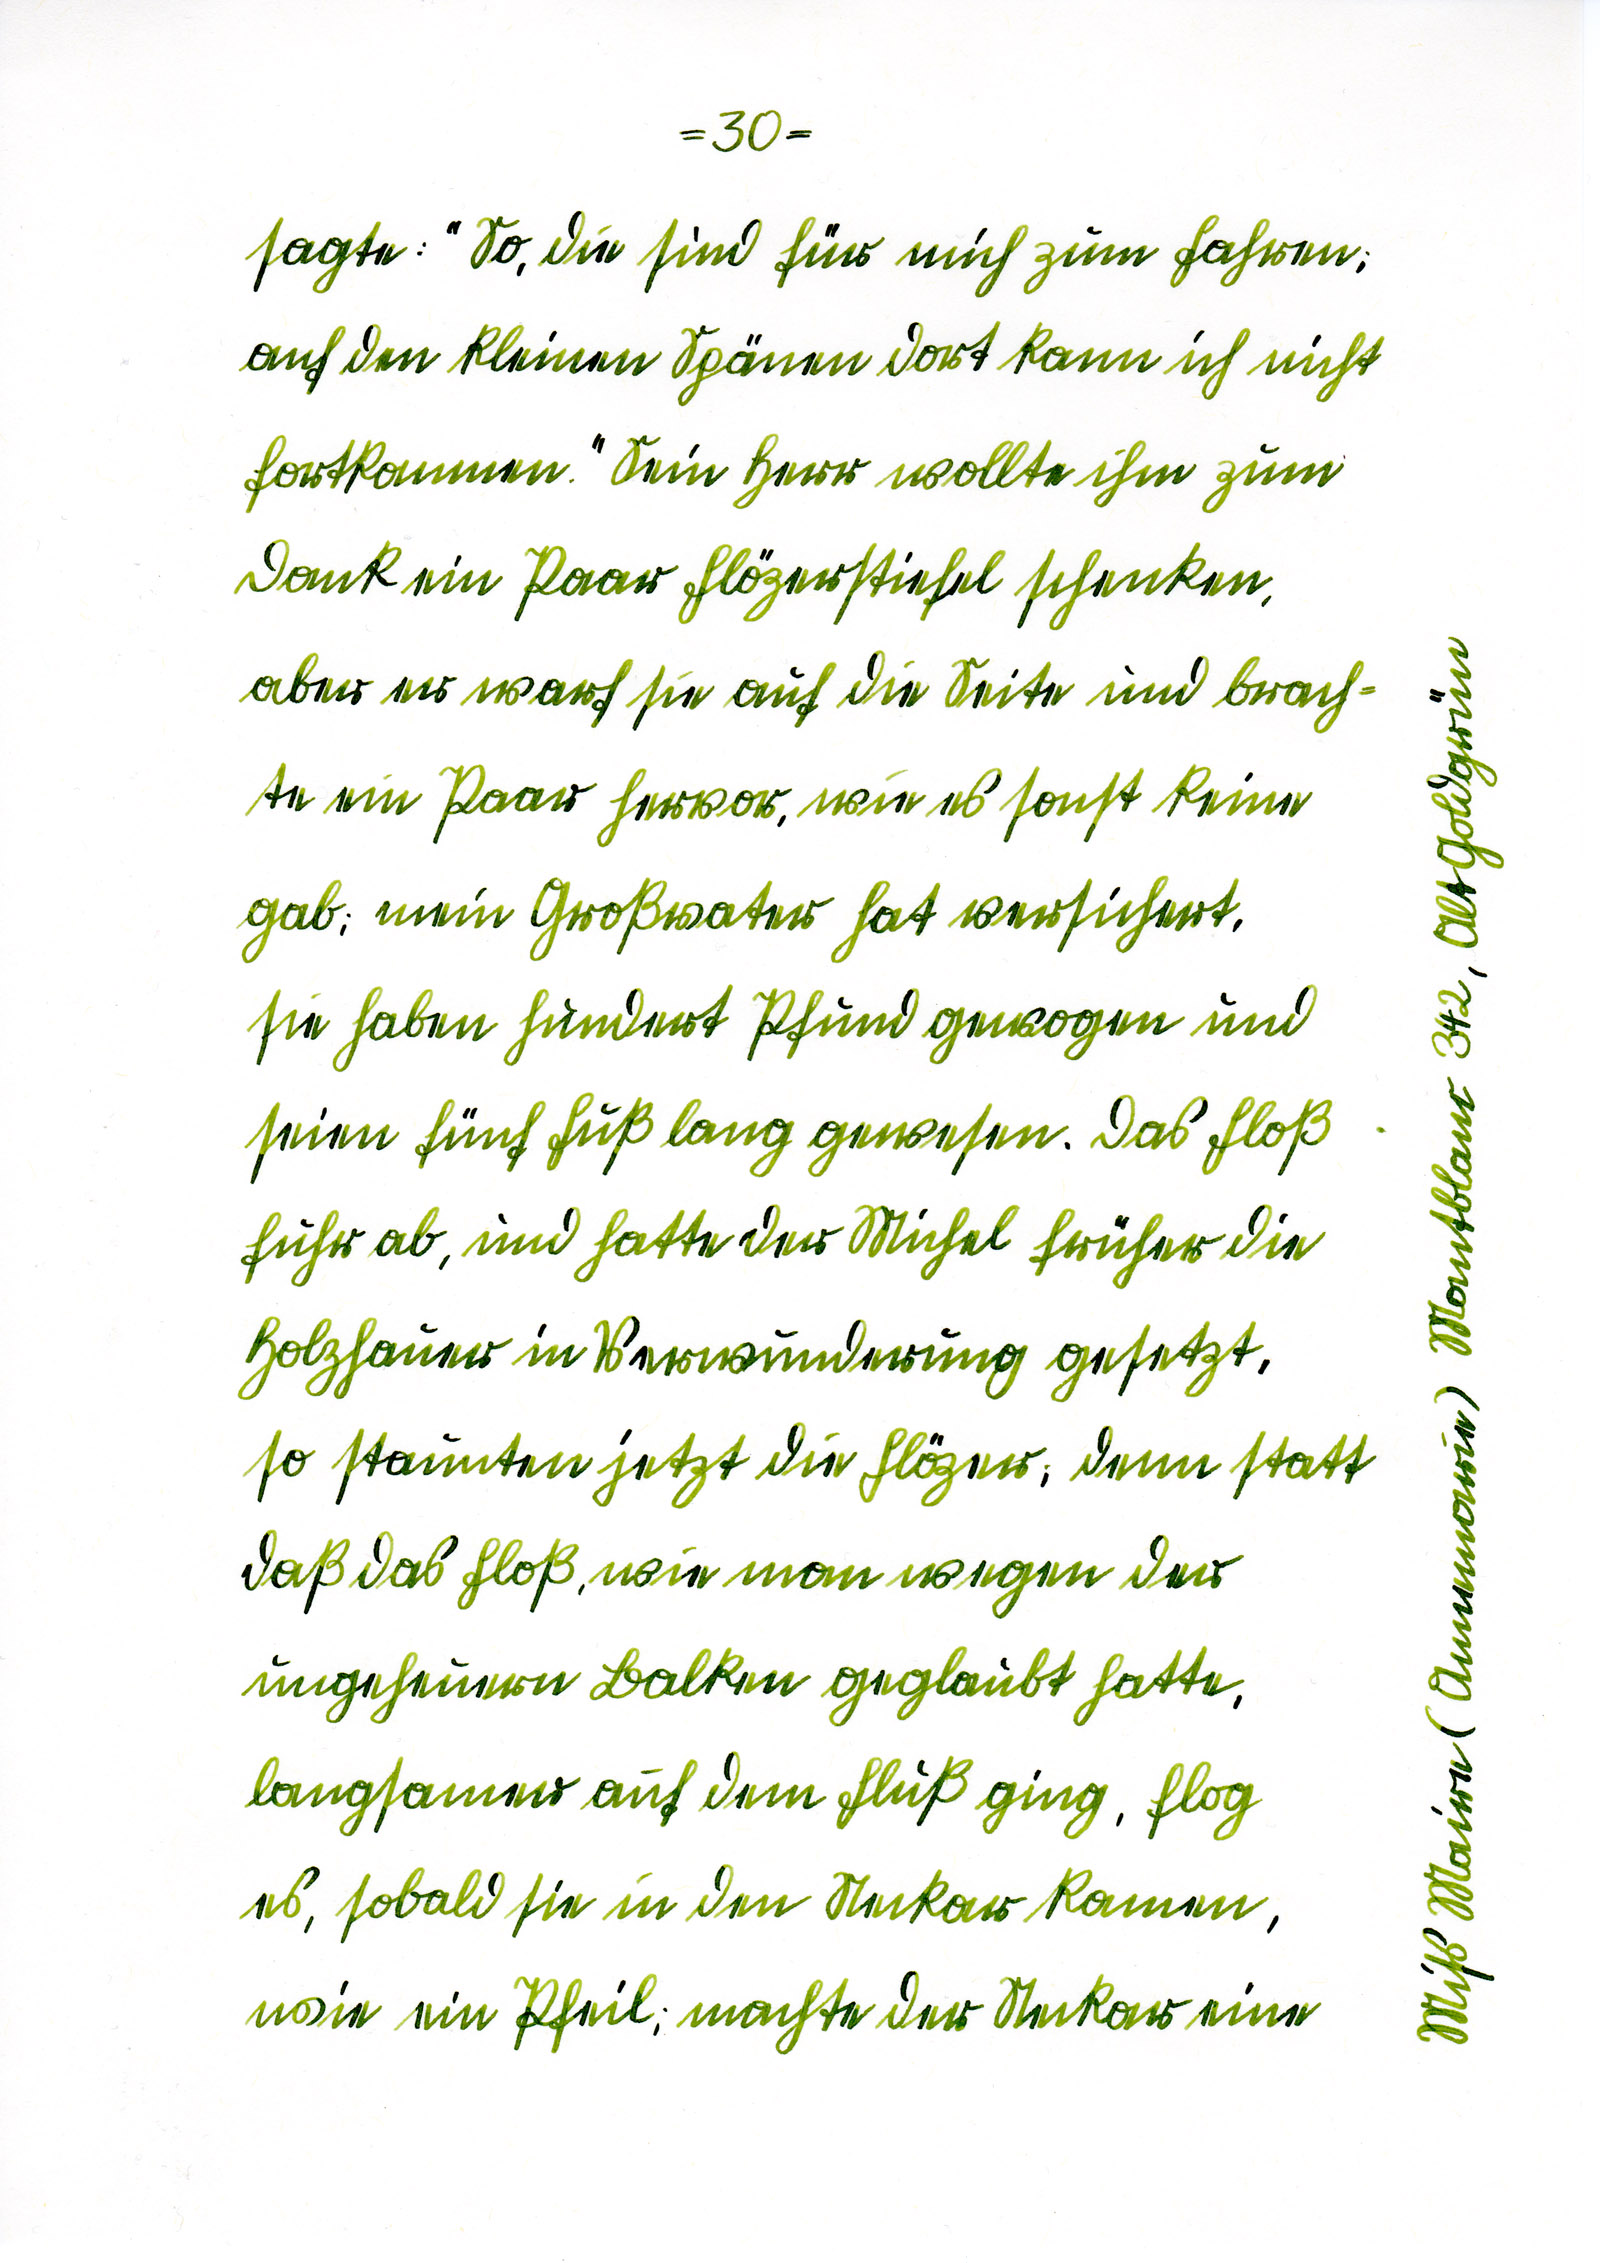 =30=
sagte: "So, die sind für mich zum Fahren;
auf den kleinen Spänen dort kann ich nicht
fortkommen." Sein Herr wollte ihm zum
Dank ein Paar Flözerstiefel schenken,
aber er warf sie auf die Seite und brach=
te ein Paar hervor, wie es sonst keine
gab; mein Großvater hat versichert,
sie haben hundert Pfund gewogen und
seien fünf Fuß lang gewesen. Das Floß
fuhr ab, und hatte der Michel früher die
Holzhauer in Verwunderung gesetzt,
so staunten jetzt die Flözer; denn statt
daß das Floß, wie man wegen der
ungeheuern Balken geglaubt hatte,
langsamer auf dem Fluß ging, flog
es, sobald sie in den Neckar kamen,
wie ein Pfeil; machte der Neckar eine
Miß Maire (Annmarie) Montblanc 342, Alt Goldgrün